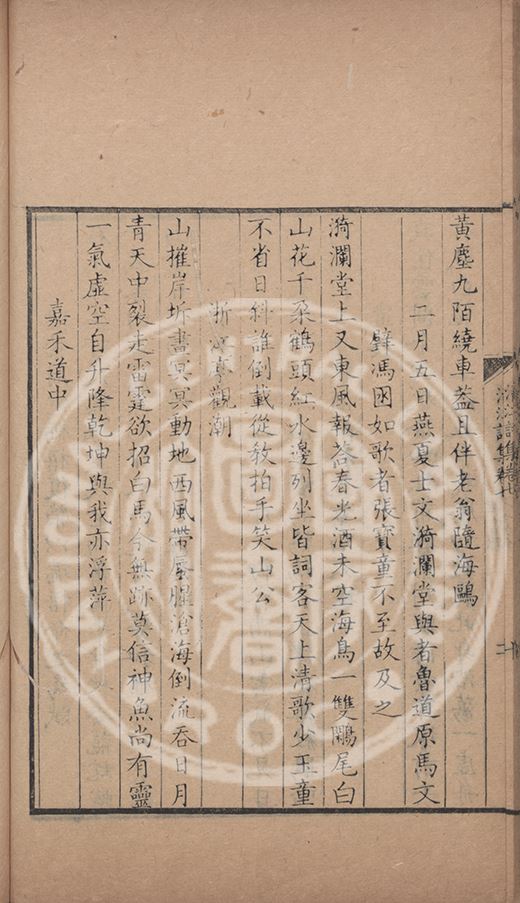 黄塵九陌繞車葢且伴老翁隨海鷗
二月五日燕夏士文漪瀾堂與者魯道原馬文
璧馮因如歌者張寳童不至故及之
漪瀾堂上又東風報荅春光酒未空海鳥一雙鷳尾白
山花千朶鶴頭紅水邊列坐皆詞客天上清歌少玉童
不省日斜誰倒載從教拍手笑山公
浙江暮觀潮
山摧岸坼晝冥冥動地西風帶蜃腥滄海倒流吞日月
青天中裂走雷霆欲招白馬今無跡莫信神魚尚有靈
一氣虛空自升降乾坤與我亦浮萍
嘉禾道中